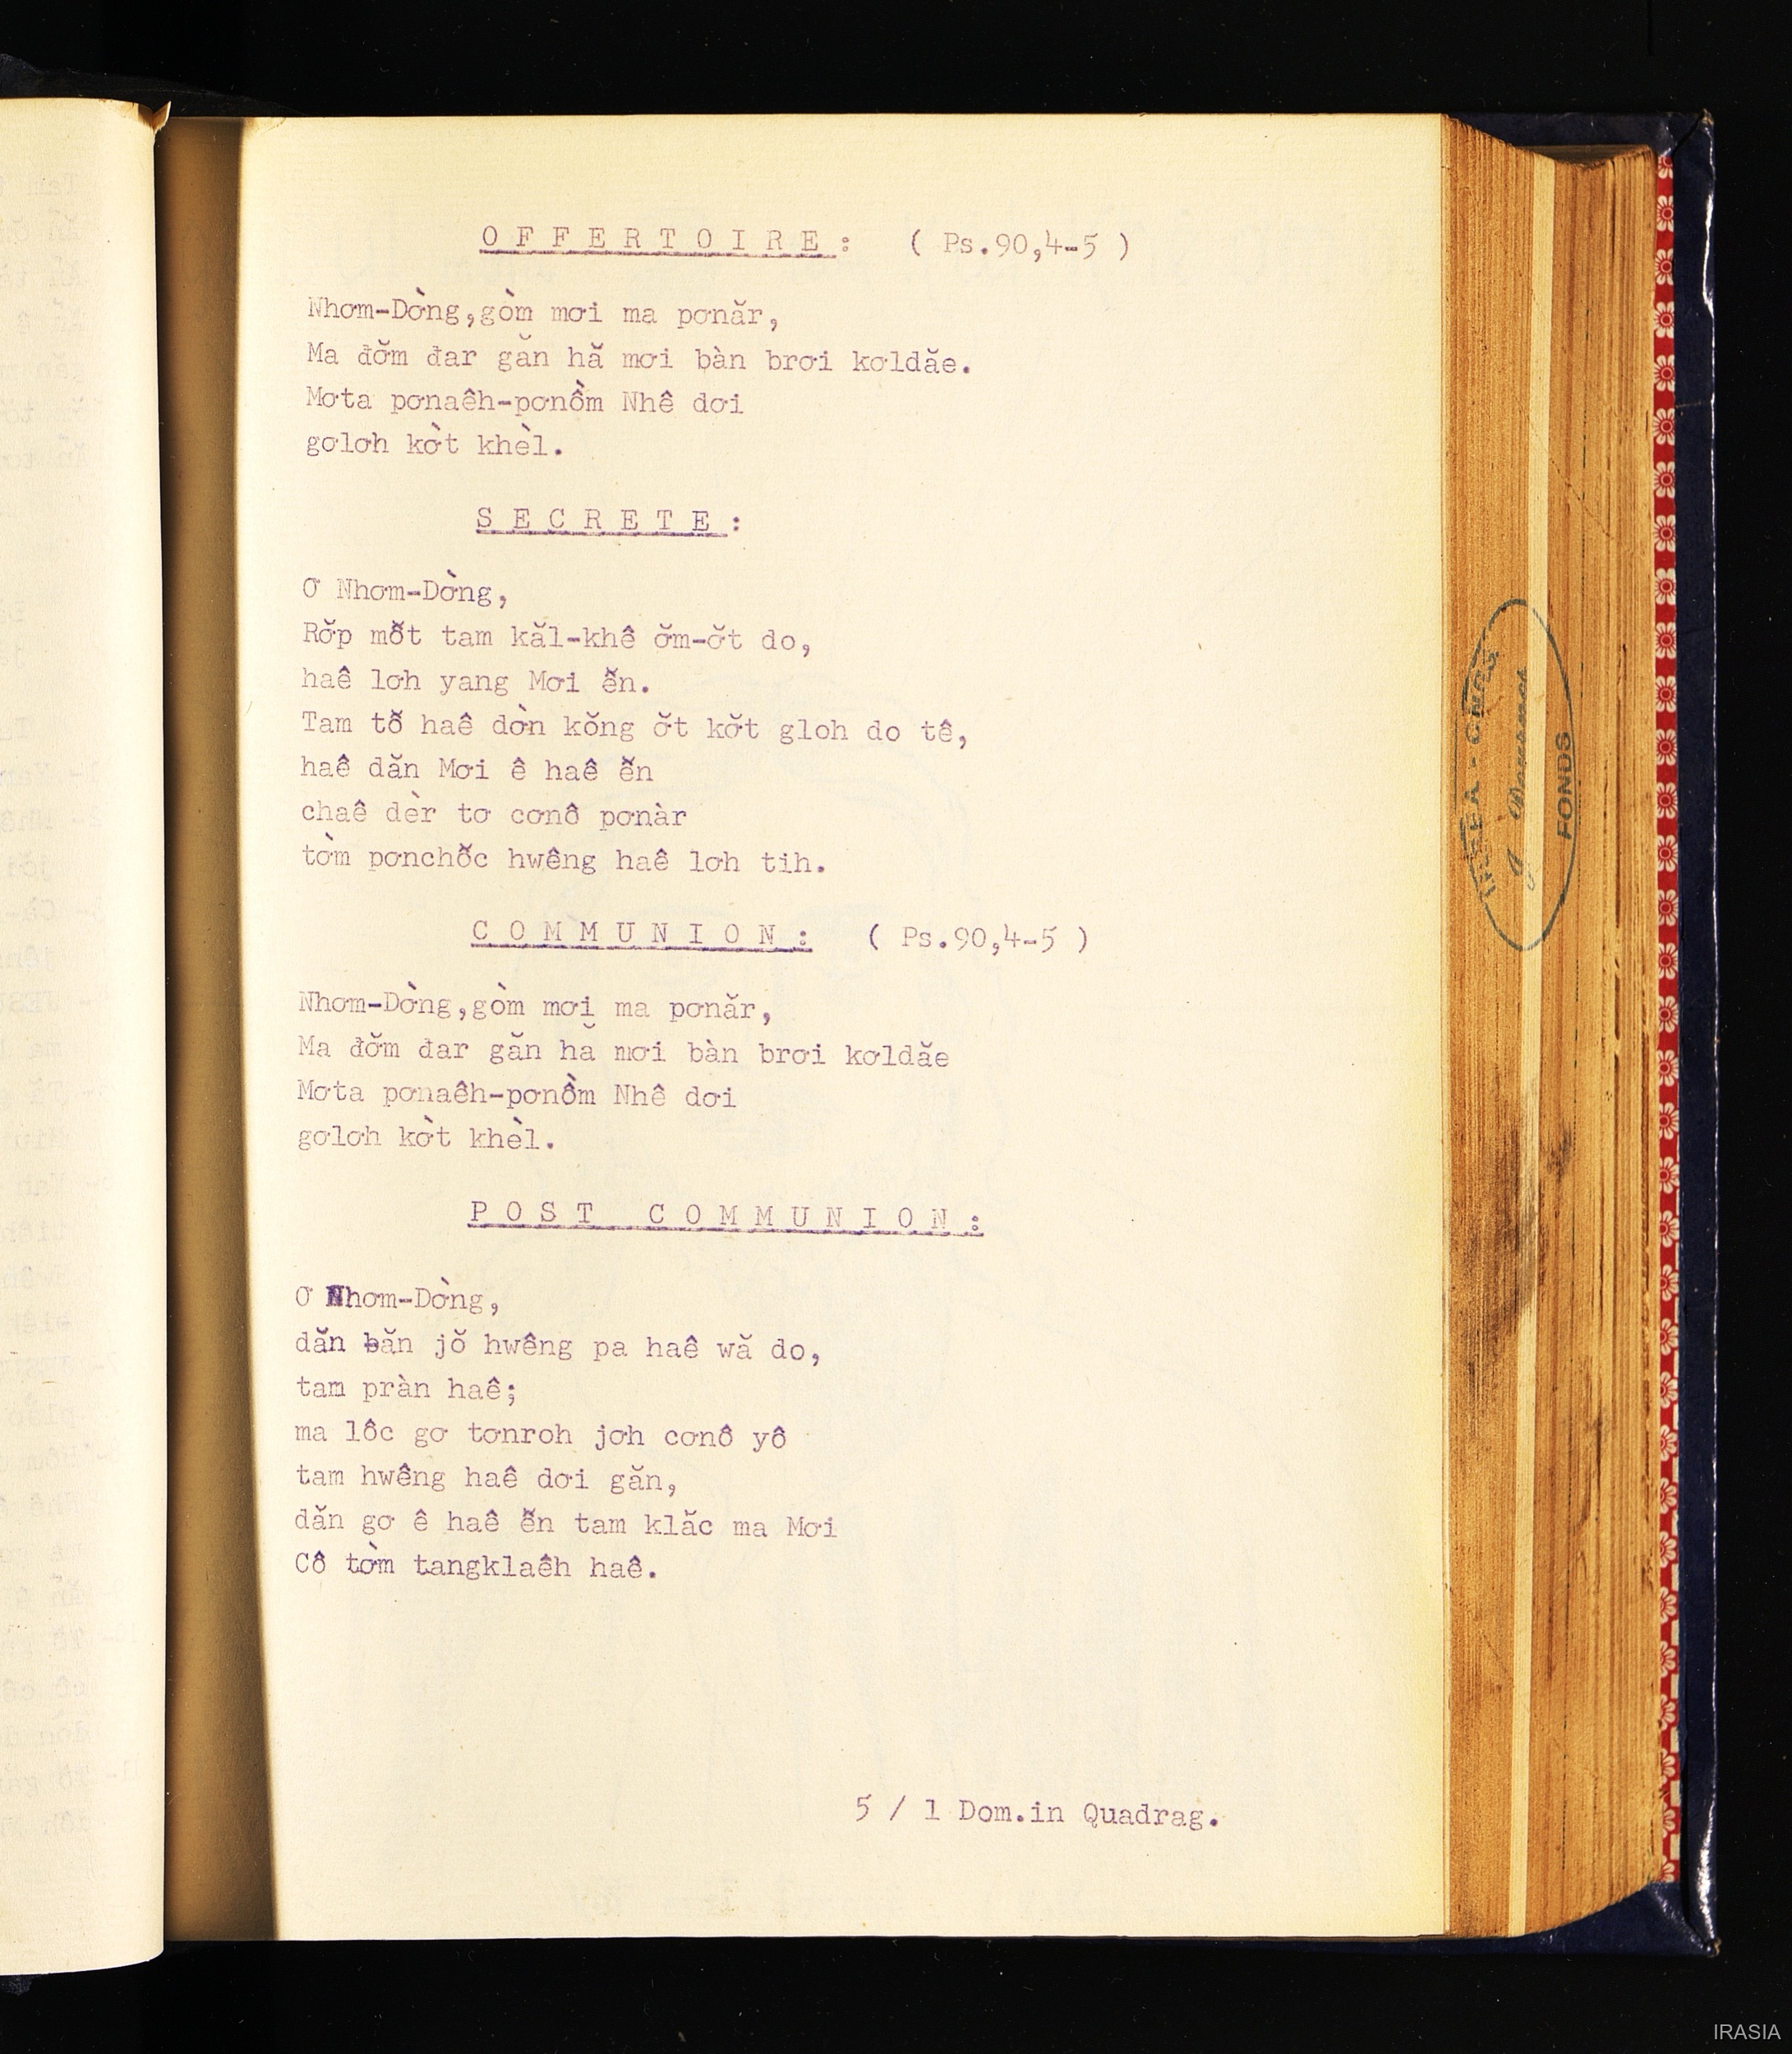 O F F E R T O I R E : ( Ps.90,4-5 )
Nhơm-Dờng,gòm mơi ma pơnăr,
Ma đơ̆m đar găn hă mơi bàn brơi kơldăe.
Mơta pơnaêh-pơnồm Nhê dơi
gơlơh kờt khèl.
S E C R E T E :
Ơ Nhơm-Dờng,
Rơ̆p mô̆t tam kăl-khê ơ̆m-ơ̆t do,
haê lơh yang Mơi ê̆n.
Tam tô̆ haê dờn kŏng ơ̆t kơ̆t gloh do tê,
haê dăn Mơi ê haê ê̆n
chaê dèr tơ cơnô pơnàr
tờm pơnchô̆c hwêng haê lơh tih.
C O M M U N I O N : ( Ps.90,4-5 )
Nhơm-Dờng,gòm mơi ma pơnăr,
Ma đơ̆m đar găn hă mơi bàn brơi kơldăe
Mơta pơnaêh-pơnồm Nhê dơi
gơlơh kờt khèl.
P O S T C O M M U N I O N :
Ơ Nhơm-Dờng,
dăn băn jŏ hwêng pa haê wă do,
tam pràn haê;
ma lôc gơ tơnroh jơh cơnô yô
tam hwêng haê dơi găn,
dăn gơ ê haê ê̆n tam klăc ma Mơi
Cô tờm tangklaêh haê.
5 / 1 Dom.in Quadrag.
FONDS
IRASIA